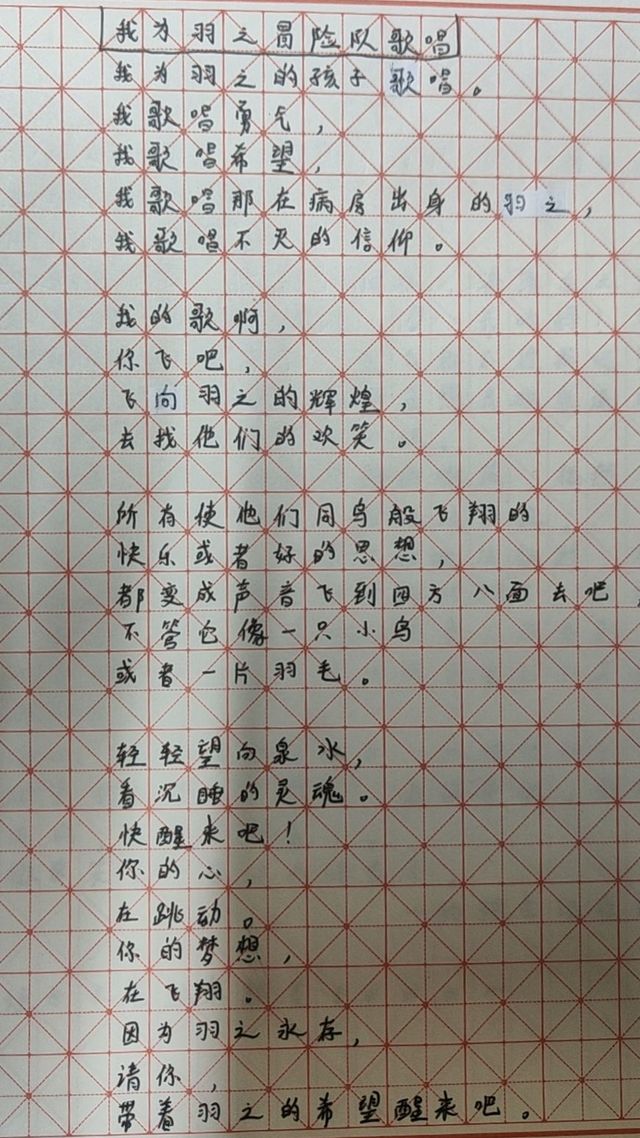 我为羽之冒险队歌唱
我为羽之的孩子歌唱。
我歌唱勇气，
我歌唱希望，
我歌唱那在病房出身的羽之，
我歌唱不灭的信仰。
我的歌啊，
你飞吧，
飞向羽之的辉煌，
去找他们的欢笑。
所有使他们同鸟般飞翔的
快乐或者好的思想，
都变成声音飞到四方八面去吧，
不管它像一只小鸟
或者一片羽毛。
轻轻望向泉水，
看沉睡的灵魂。
快醒来吧！
你的心，
在跳动。
你的梦想，
在飞翔。
因为羽之永存，
请你，
带着羽之的希望醒来吧。